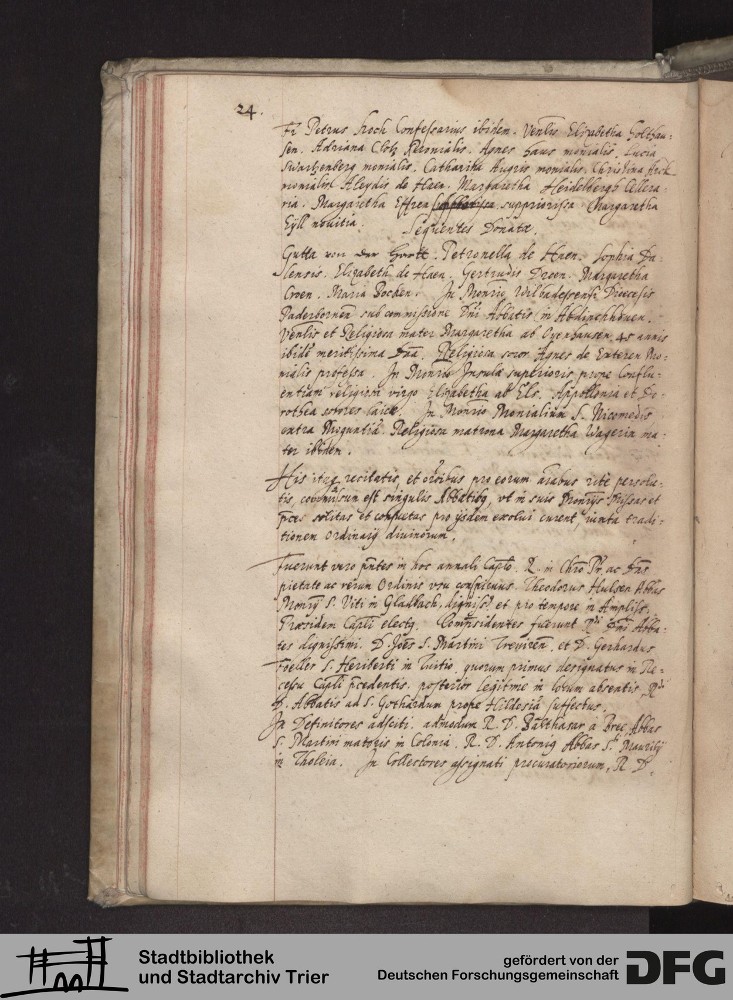 24.
Fr Petrus Hech Confessarius ibidem. Venlis Elizabetha Holthau-
sen. Adriana Clotz Monialis. Agnes Haus monialis. Lucia
Swartzenberg monialis. Catharina Augris monialis. Christina Heck
monialis Aleydis de Haen. Margaretha Heidelbergs Cellera-
ria. Margaretha Effren suppriorissa Margaretha
Eyll novitia. Sequentes Donatæ.
Gutta von der Hortt. Petronella de Haen. Sophia Da-
lensis. Elizabeth de Haen. Gertrudis Dreen. Margaretha
Croen. Maria Bochen. In Monrio Wilbadessensi Diœcesis
Paderbornen sub commissione Dni Abbatis in Abdinckhouen.
Venlis et Religiosa mater Margaretha ab Oyenhausen 45 annis
ibidē meritissima Dna. Religiosa soror Agnes de Exteren Mo-
nialis professa. In Monrio Insulæ superioris prope Conflu-
entiam religiosa virgo Elizabetha ab Els. Appollonia et Do-
rothea sorores laicæ. In Monrio Monialium S. Nicomedis
extra Moguntiā. Religiosa matrona Margaretha Wagerin ma-
ter ibidem.
His itaq recitatis, et oronibus pro eorum aīabus rite persolu-
tis, commissum est singulis Abbatibq, vt in suis Monrijs Missas et
pces solitas et consuetas pro ijsdem exolui curent iuxta tradi-
tionem Ordinarij diuinorum.
Fuerunt vero pntes in hoc annali Caplo. R. in Chro Pr ac Dns
pietate ac rerum Ordinis vsu conspicuus Theodorus Hulsen Abbas
Monrij S. Viti in Gladbach, digniss et pro tempore in Ampliss.
Præsidem Capli electq. Compræsidentes fuerunt Rdi Dni Abba-
tes dignissimi. D. Joēs S. Martini Treviren, et D. Gerhardus
Foeller S. Heriberti in Tuitio, quorum primus designatus in Re-
cessu Capli pcedentis. posterior legitime in locum absentis Rdi
D. Abbatis ad S. Gothardum prope Hildesiā suffectus.
In Definitores adsciti. admodum R. D. Balthasar a Bree, Abbas
S. Martini maioris in Colonia. R. D. Antoniq Abbas S. Mauritij
in Tholeia. In Collectores assignati procuratoriorum, R. D.
Stadtbibliothek
und Stadtarchiv Trier
gefördert von der
Deutschen Forschungsgemeinschaft
DFG